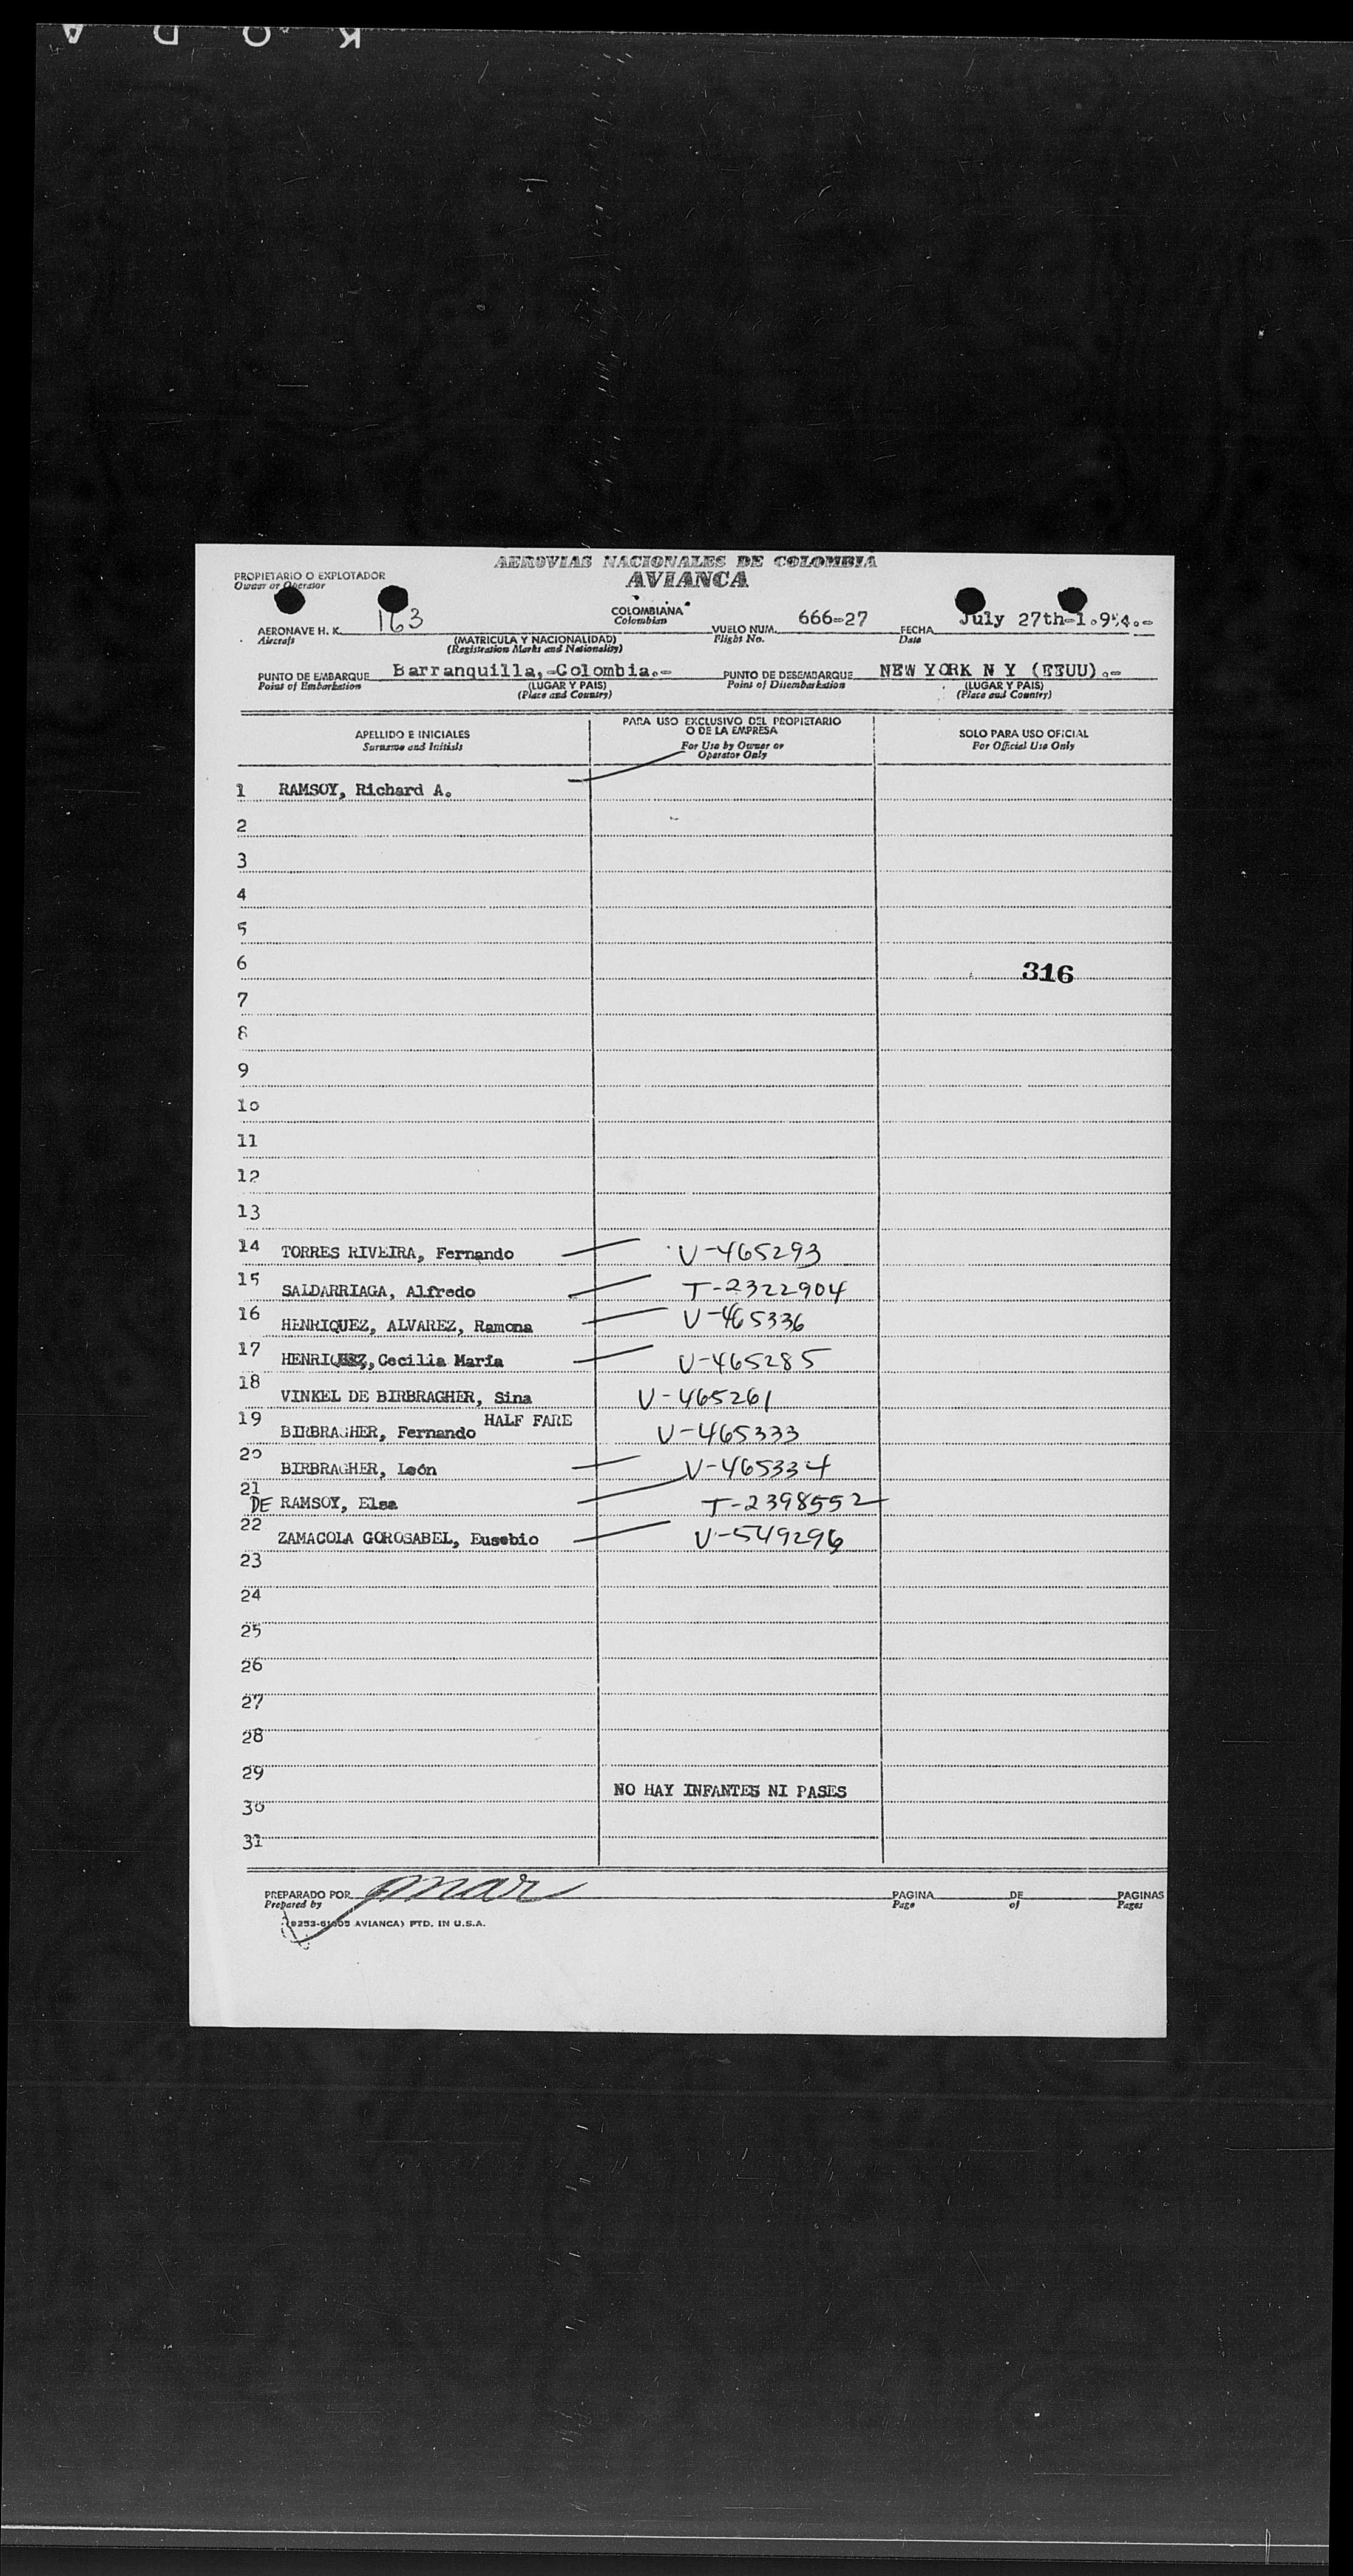 K O D A
AEROVIAS NACIONALES DE COLOMBIA
AVIANCA
PROPIETARIO O EXPLOTADOR
Owner or Operator
AERONAVE H. K. 163 COLOMBIANA VUELO NUM. 666-27 FECHA July 27th-1.954.-
Aircraft Colombian Flight No. Date
(MATRICULA Y NACIONALIDAD)
(Registration Marks and Nationality)
PUNTO DE EMBARQUE Barranquilla,-Colombia.- PUNTO DE DESEMBARQUE NEW YORK N Y (EEUU).-
Point of Embarkation (LUGAR Y PAIS) Point of Disembarkation (LUGAR Y PAIS)
(Place and Country) (Place and Country)
APELLIDO E INICIALES PARA USO EXCLUSIVO DEL PROPIETARIO O DE LA EMPRESA SOLO PARA USO OFICIAL
Surname and Initials For Use by Owner or Operator Only For Official Use Only
1 RAMSOY, Richard A.
2
3
4
5
6 316
7
8
9
10
11
12
13
14 TORRES RIVEIRA, Fernando V-465293
15 SALDARRIAGA, Alfredo T-2322904
16 HENRIQUEZ, ALVAREZ, Ramona V-465336
17 HENRIQUEZ, Cecilia María V-465285
18 VINKEL DE BIRBRAGHER, Sina V-465261
19 BIRBRAGHER, Fernando HALF FARE V-465333
20 BIRBRAGHER, León V-465334
21 DE RAMSOY, Elsa T-2398552
22 ZAMACOLA GOROSABEL, Eusebio V-549296
23
24
25
26
27
28
29
NO HAY INFANTES NI PASES
30
31
PREPARADO POR PAGINA DE PAGINAS
Prepared by Page of Pages
AVIANCA) PTD. IN U.S.A.